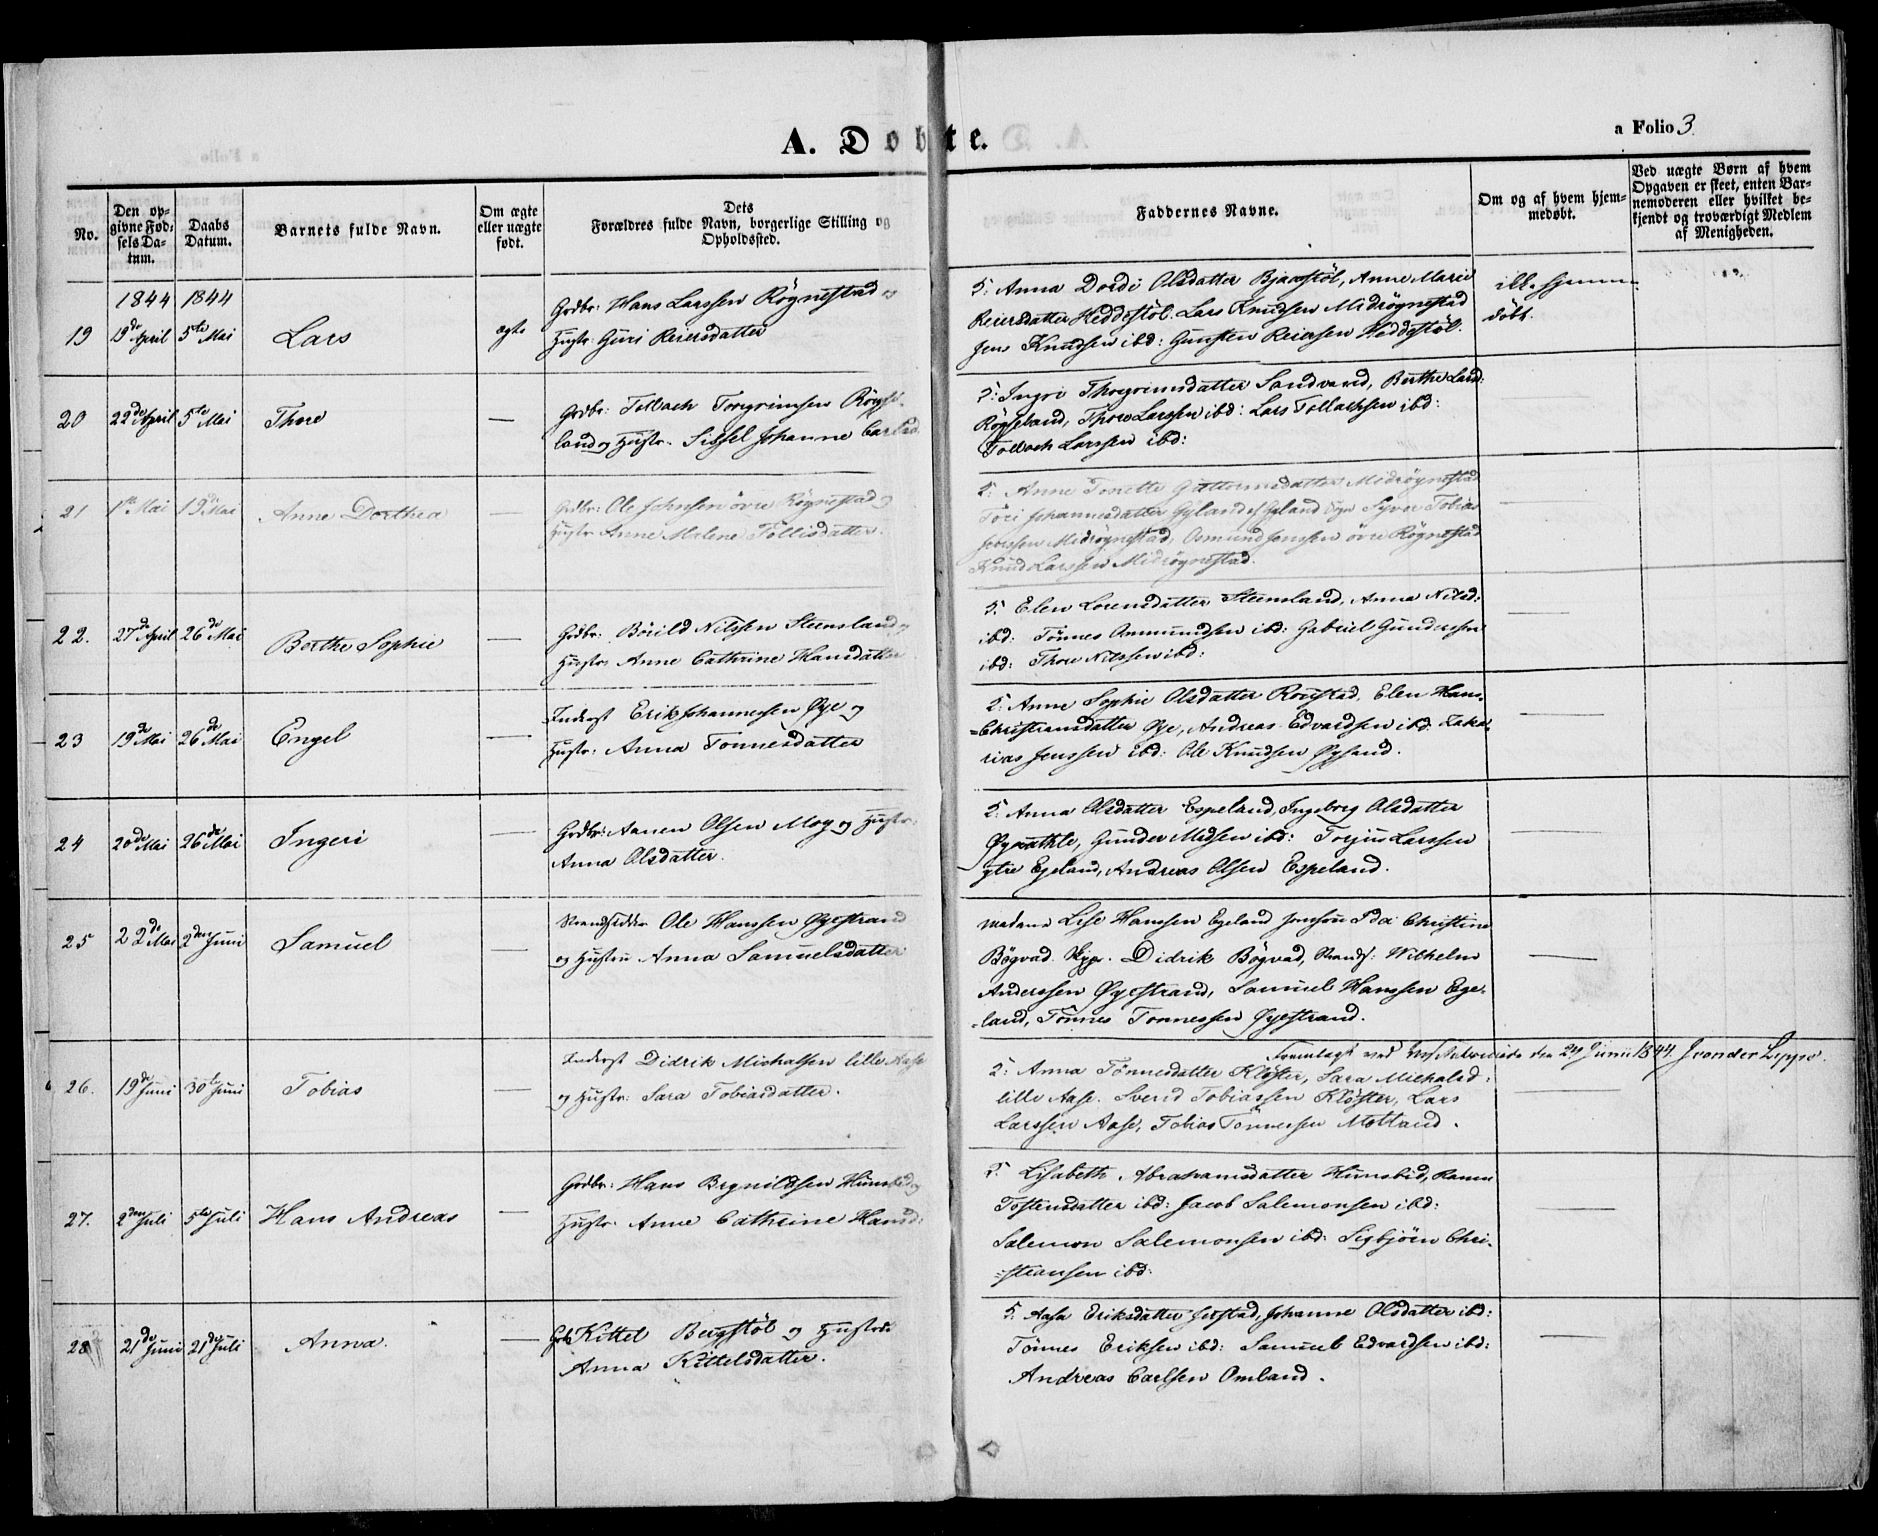 A. Døbte.
a Folio 3.
No.
Den op-
givne Fød-
sels Da-
tum.
Daabs
Datum.
Barnets fulde Navn.
Om ægte
eller uægte
født.
Dets
Forældres fulde Navn, borgerlige Stilling og
Opholdssted.
Faddernes Navne.
Om og af hvem hjem-
medøbt.
Ved uægte Børn af hvem
Opgaven er skeet, enten Bar-
nemoderen eller hvilket be-
kjendt og troværdigt Medlem
af Menigheden.
1844 1844
19 19de April 5te Mai Lars ægte
Grdbr: Hans Larssen Røgnestad og
Hustr: Guri Reiersdatter
5: Anna Dordi Olsdatter Bjaastøl, Anne Marie
Reiersdatter Heddestøl. Lars Knudsen Midrøgnestad
Jens Knudsen ibd: Gunsten Reiersen Heddestøl.
ikke hjemme-
døbt.
20 22de April 5te Mai Thore —
Grdbr: Tollach Torgrimsen Røgse-
land og Hustr. Sissel Johanne Carlsd.
5: Ingri Thorgrimsdatter Sandvand, Berthe Larsd:
Røgseland, Thore Larssen ibd: Lars Tollachsen ibd:
Tollach Larssen ibd:
21 1ste Mai 19de Mai Anne Dorthea —
Grdbr: Ole Johnsen øvre Røgnestad og
Hustr. Anne Malene Tollisdatter.
5: Anne Tonette Guttormsdatter Midrøgnestad
Töri Johannesdatter Gyland af Gyland Sogn Syver Tobias
Jenssen Midrøgnestad, Osmund Jenssen øvre Røgnestad
Knud Larssen Midrøgnestad.
22. 27de April 26de Mai Berthe Sophie —
Grdbr: Bøiild Nilssen Steensland og
Hustr: Anne Cathrine Hansdatter
5: Elen Lorensdatter Steensland, Anna Nilsd:
ibd: Tönnes Onmundsen ibd: Gabriel Gunderssen
ibd: Thore Nilssen ibd:
23 19de Mai 26de Mai Engel —
Inderst Erik Johannessen Øye og
Hustr: Anna Tonnesdatter
5: Anne Sophie Olsdatter Rovstad, Elen Hans
Christiansdatter Øye, Andreas Edvardsen ibd: Zaka-
rias Jenssen ibd: Ole Knudsen Øysand.
24 20de Mai 26de Mai Ingeri —
Grdbr: Aanen Olsen Moy og Hustr:
Anna Olsdatter.
5: Anna Olsdatter Espeland, Ingeborg Olsdatter
Gunder Madsen ibd: Torjus Larssen
ytre Egeland, Andreas Olsen Espeland.
25 22de Mai 2den Juni Samuel —
Strandsidder Ole Hanssen Øyestrand
og Hustru Anna Samuelsdatter
Madame Lise Hanssen Egeland Jomfru Ida Christine
Bøgvad. Skpr. Didrik Bøgvad, Strands: Wilhelm
Anderssen Øyestrand, Samuel Hanssen Ege-
land, Tönnes Tonnessen Øyestrand.
Fremlagt ved Visitatsen den 24 Junii 1844. J von der Lippe.
26. 19de Juni 30te Juni Tobias —
Inderst Didrik Michalsen lille Aase
og Hustr: Sara Tobiasdatter.
5: Anna Tönnesdatter Kløster, Sara Michalsd:
lille Aase. Sverid Tobiassen Kløster, Lars
Larssen Aase, Tobias Tönnessen Motland.
27. 2den Juli 5te Juli Hans Andreas —
Grdbr: Hans Bognildsen Hunsbed og
Hustr. Anne Cathrine Hansd:
5 Lisabeth Abrahamsdatter Hunsbed,
Tostensdatter ibd: Jacob Salemonsen ibd:
Salemon Salemonsen ibd: Sigbjørn Chri-
stiansen ibd:
28 21de Juni 21de Juli Anna. —
Grdb Kittel Bergstøl og Hustrue
Anna Kittelsdatter.
5. Aasa Eriksdatter Jerstad, Johanne Olsdatter ibd:
Tönnes Eriksen ibd: Samuel Edvardsen ibd:
Andreas Carlsen Omland.